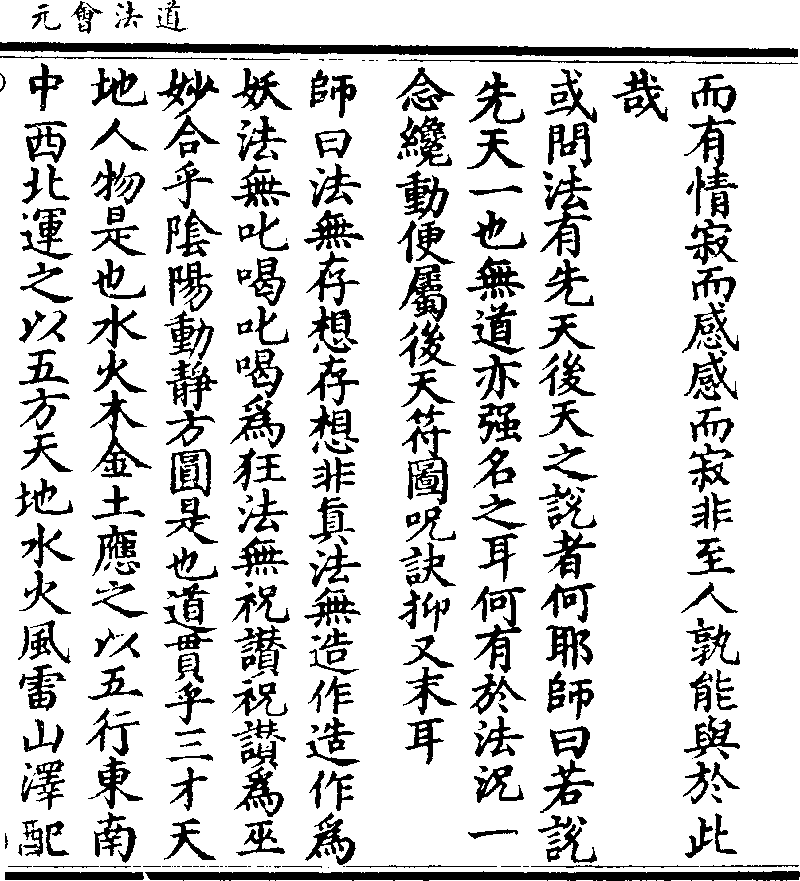 道法會元
而有情寂而感感而寂非至人孰能與於此
哉
或問法有先天後天之說者何耶師曰若說
先天一也無道亦强名之耳何有於法況一
念纔動便屬後天符圖呪訣抑又末耳
師曰法無存想存想非眞法無造作造作爲
妖法無叱喝叱喝爲狂法無祝讃祝讃爲巫
妙合乎陰陽動靜方圓是也道貫乎三才天
地人物是也水火木金土應之以五行東南
中西北運之以五方天地水火風雷山澤配